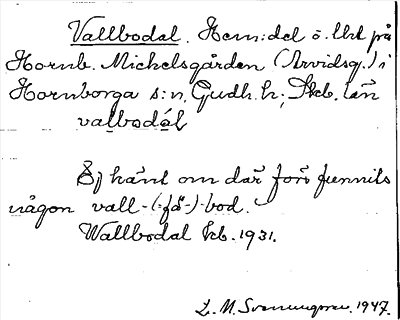 Vallbodal. Hem:del ö. lht på
Hornb. Mickelsgården (Arvidsg.) i
Hornborga s:n, Gudh. h; Skb. län
valbodál
Ej känt om där förr funnits
någon vall-(=fä-)-bod.
Wallbodal kb. 1931.
L. M. Svenungsson. 1947.